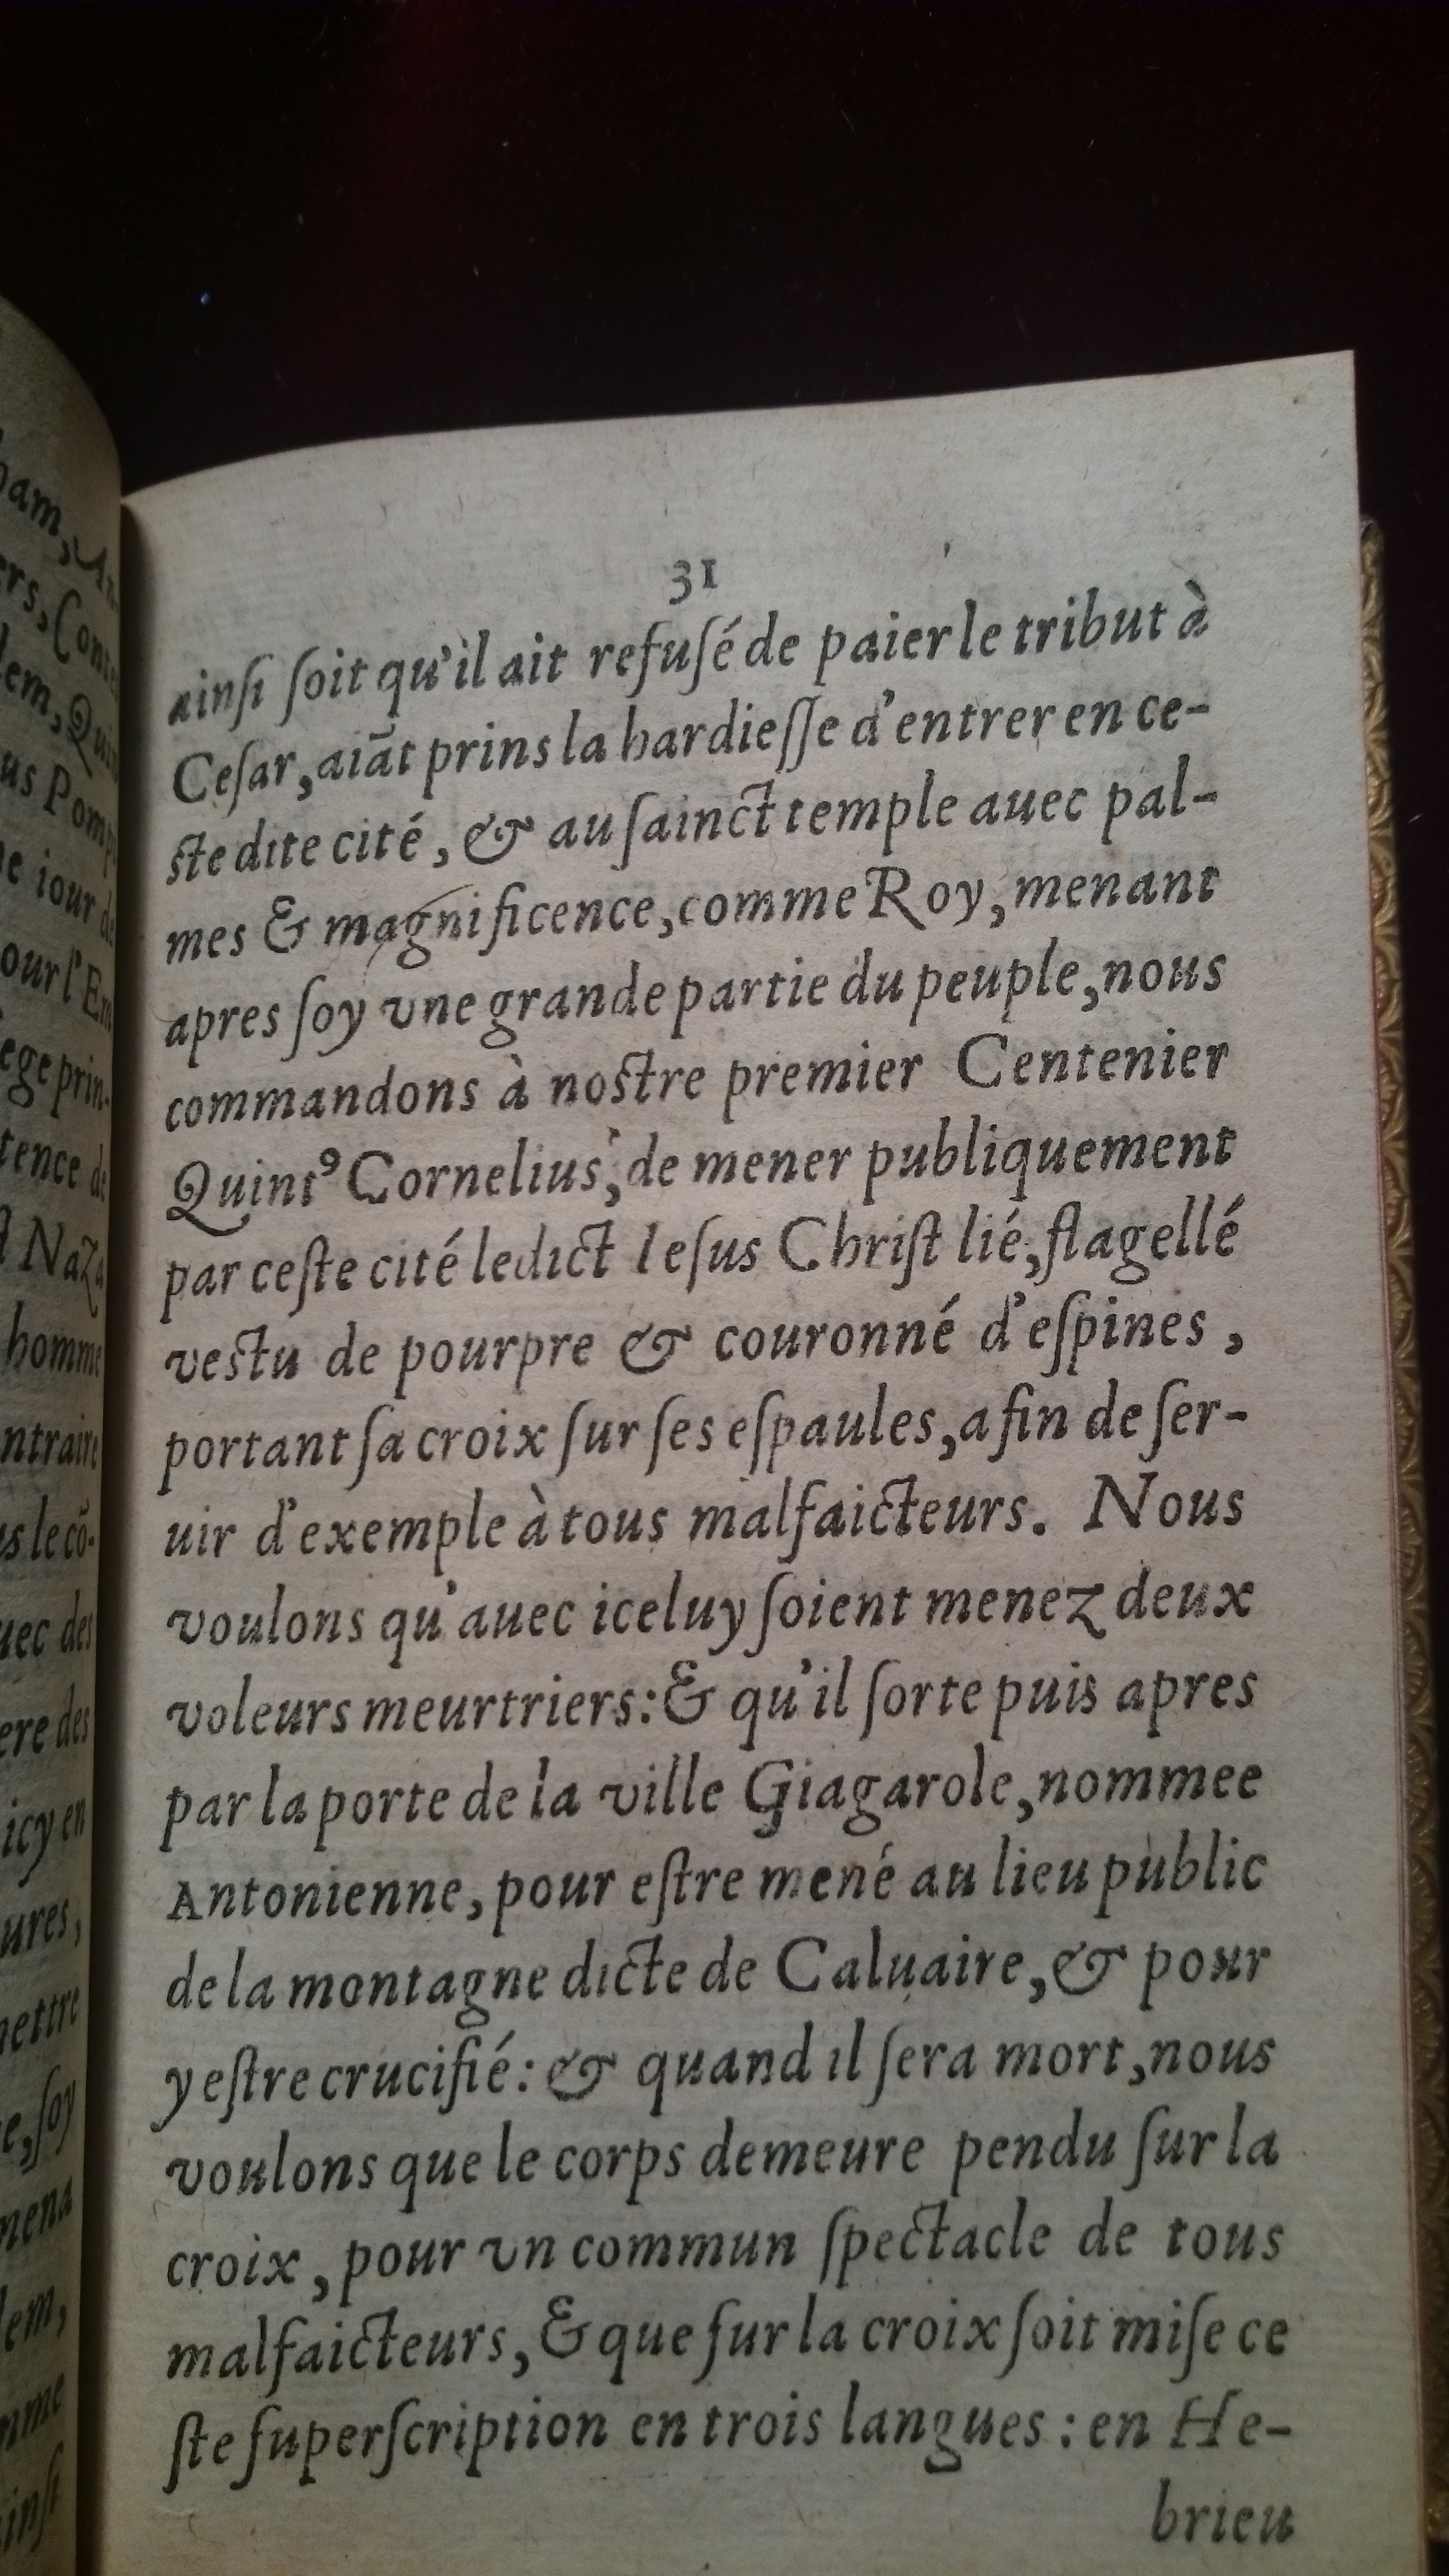 31
ainſi ſoit qu'il ait refuſé de paier le tribut à
Ceſar, aiãt prins la hardieſſe d'entrer en ce-
ſte dite cité, & au ſainct temple auec pal-
mes & magnificence, comme Roy, menant
apres ſoy vne grande partie du peuple, nous
commandons à noſtre premier Centenier
Quintꝰ Cornelius, de mener publiquement
par ceſte cité ledict Ieſus Chriſt lié, flagellé
veſtu de pourpre & couronné d'eſpines,
portant ſa croix ſur ſes eſpaules, afin de ſer-
uir d'exemple à tous malfaicteurs. Nous
voulons qu'auec iceluy ſoient menez deux
voleurs meurtriers: & qu'il ſorte puis apres
par la porte de la ville Giagarole, nommee
Antonienne, pour eſtre mené au lieu public
de la montagne dicte de Caluaire, & pour
y eſtre crucifié: & quand il ſera mort, nous
voulons que le corps demeure pendu ſur la
croix, pour vn commun ſpectacle de tous
malfaicteurs, & que ſur la croix ſoit miſe ce
ſte ſuperſcription en trois langues: en He-
brieu